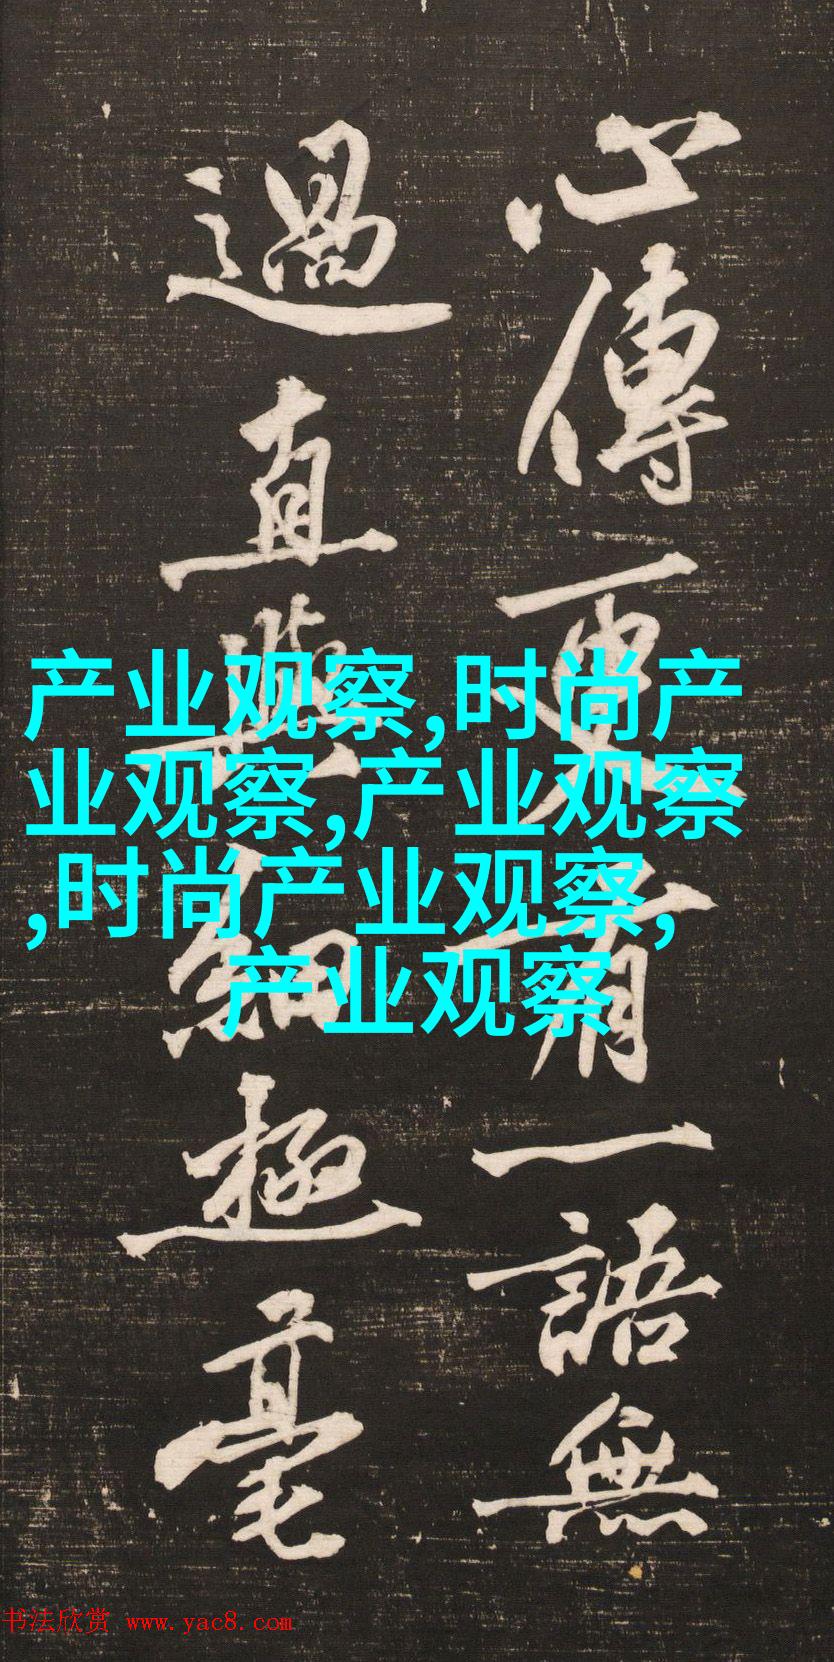 心傳更有一語無
過直與細極毫
产业观察,时尚产
业观察,产业观察
,时尚产业观察,
产业观察
书法欣赏 www.yac8.com